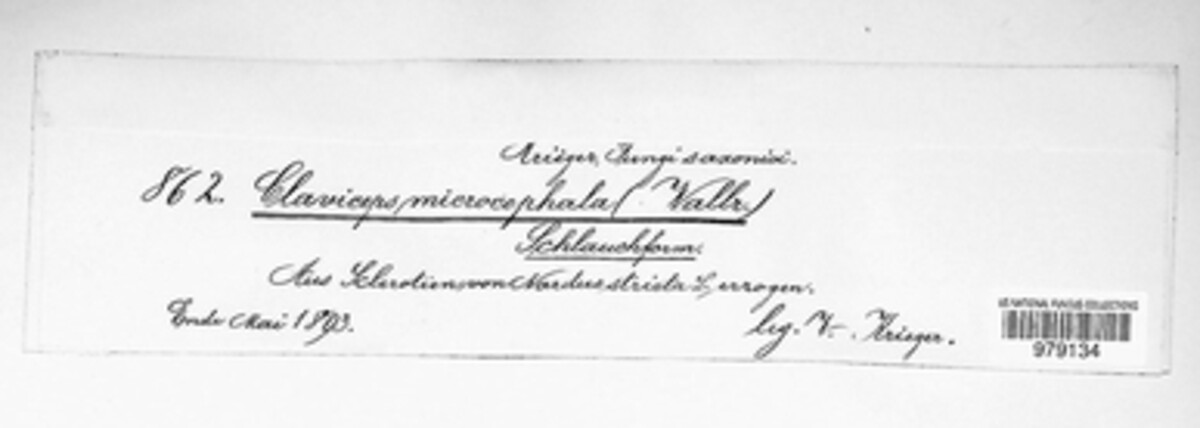 Krieger, Fungi saxonici.
862. Claviceps microcephala (Wallr.)
Schlauchform.
Aus Sclerotien von Nardus stricta L. erzogen.
Ende Mai 1893.
leg. W. Krieger.
US NATIONAL FUNGUS COLLECTIONS
979134